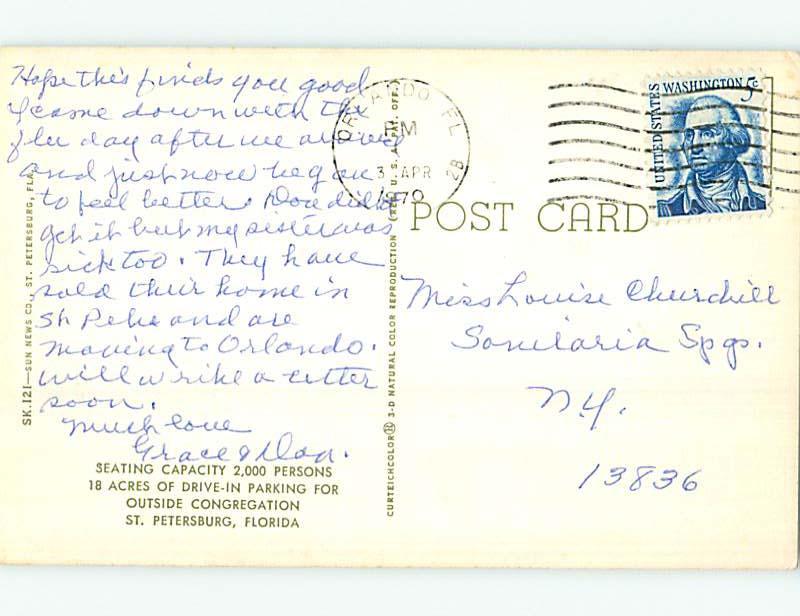 Hope this finds you good
I came down with the
flu day after we arrived
and just now began
to feel better. Don didn't
get it but my sister was
sick too. They have
sold their home in
St Pete and are
moving to Orlando.
will write a letter
soon.
much love
Grace & Don.
SEATING CAPACITY 2,000 PERSONS
18 ACRES OF DRIVE-IN PARKING FOR
OUTSIDE CONGREGATION
ST. PETERSBURG, FLORIDA
SK.121—SUN NEWS CO., ST. PETERSBURG, FLA.
CURTEICHCOLOR® 3-D NATURAL COLOR REPRODUCTION (REG. U.S.A. PAT. OFF.)
ORLANDO FL 328
PM
APR
1970
UNITED STATES
WASHINGTON 5c
POST CARD
Miss Louise Churchill
Sanitaria Spgs.
N.Y.
13836